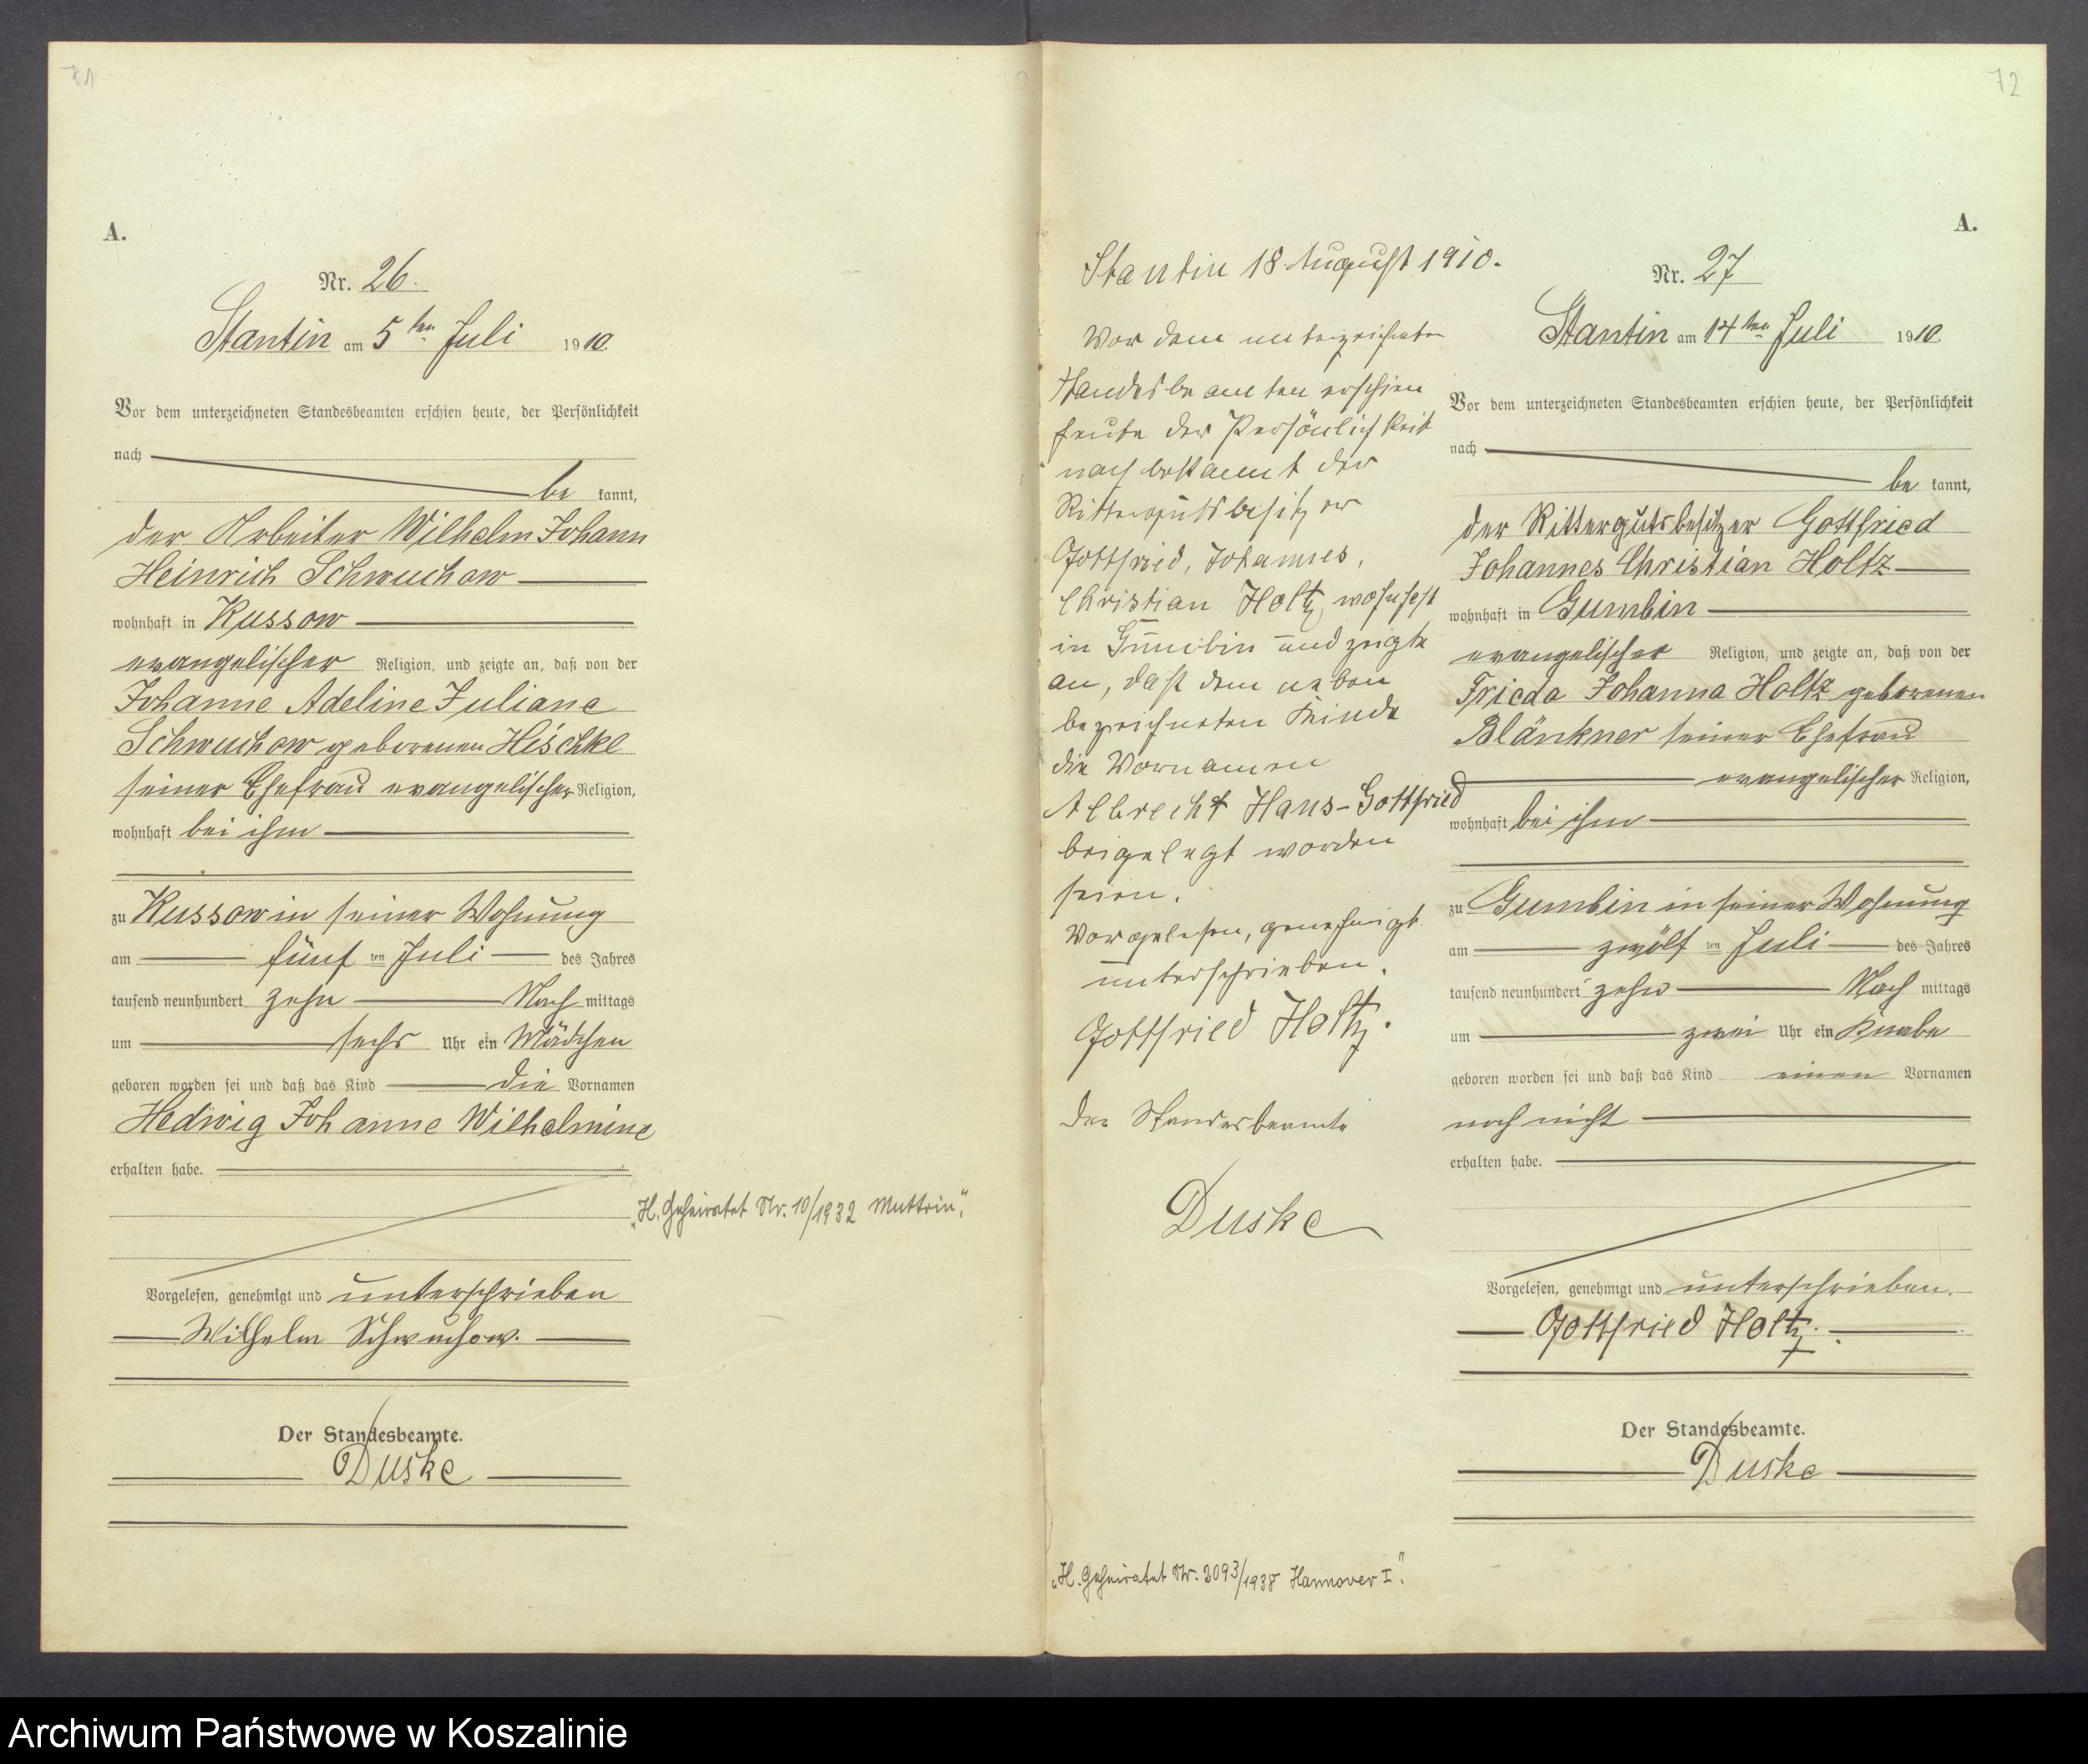 71
A.
Nr. 26.
Stantin am 5ten Juli 1910.
Vor dem unterzeichneten Standesbeamten erschien heute, der Persönlichkeit
nach
be kannt,
der Arbeiter Wilhelm Johann
Heinrich Schwuchow
wohnhaft in Kussow
evangelischer Religion, und zeigte an, daß von der
Johanne Adeline Juliane
Schwuchow geborenen Hischke
seiner Ehefrau evangelischer Religion,
wohnhaft bei ihm
zu Kussow in seiner Wohnung
am fünf ten Juli des Jahres
tausend neunhundert zehn Nach mittags
um sechs Uhr ein Mädchen
geboren worden sei und daß das Kind die Vornamen
Hedwig Johanne Wilhelmine
erhalten habe.
„H. Geheiratet Nr. 10/1932 Muttrin“.
Vorgelesen, genehmigt und unterschrieben
Wilhelm Schwuchow.
Der Standesbeamte.
Duske
Stantin 18 August 1910.
Vor dem unterzeichneten
Standesbeamten erschien
heute der Persönlichkeit
nach bekannt der
Rittergutsbesitzer
Gottfried, Johannes,
Christian Holtz, wohnhaft
in Gumbin und zeigte
an, daß dem neben
bezeichneten Kinde
die Vornamen
Albrecht Hans-Gottfried
beigelegt worden
seien.
Vorgelesen, genehmigt
unterschrieben.
Gottfried Holtz.
Der Standesbeamte
Duske
„H. Geheiratet Nr. 2093/1938 Hannover I“.
72
A.
Nr. 27
Stantin am 14ten Juli 1910.
Vor dem unterzeichneten Standesbeamten erschien heute, der Persönlichkeit
nach
be kannt,
der Rittergutsbesitzer Gottfried
Johannes Christian Holtz
wohnhaft in Gumbin
evangelischer Religion, und zeigte an, daß von der
Frieda Johanna Holtz geborenen
Blänkner seiner Ehefrau
evangelischer Religion,
wohnhaft bei ihm
zu Gumbin in seiner Wohnung
am zwölf ten Juli des Jahres
tausend neunhundert zehn Nach mittags
um zwei Uhr ein Knabe
geboren worden sei und daß das Kind einen Vornamen
noch nicht
erhalten habe.
Vorgelesen, genehmigt und unterschrieben.
Gottfried Holtz.
Der Standesbeamte.
Duske
Archiwum Państwowe w Koszalinie